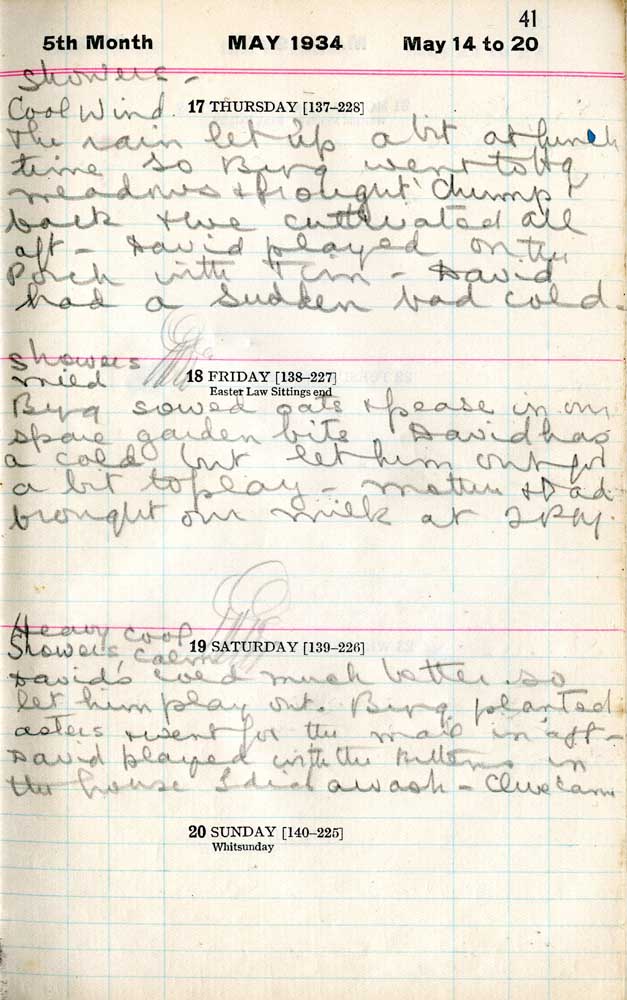 41
5th Month MAY 1934 May 14 to 20
Showers -
Cool Wind 17 THURSDAY [137–228]
The rain let up a bit at lunch
time so Byrg went to Hq
meadows & brought "Chump"
back & we cultivated all
aft - David played on the
Porch with Tim - David
had a sudden bad cold.
Showers
mild 18 FRIDAY [138–227]
Easter Law Sittings end
Byrg sowed oats & pease in our
spare garden bits David has
a cold but let him out for
a bit to play - Mother & Dad
brought our milk at 2 P.M.
Heavy cool
Showers, calm 19 SATURDAY [139–226]
David's cold much better so
let him play out. Byrg planted
asters & went for the mail in aft -
David played with the kittens in
the house I did a wash - Clue came
20 SUNDAY [140–225]
Whitsunday